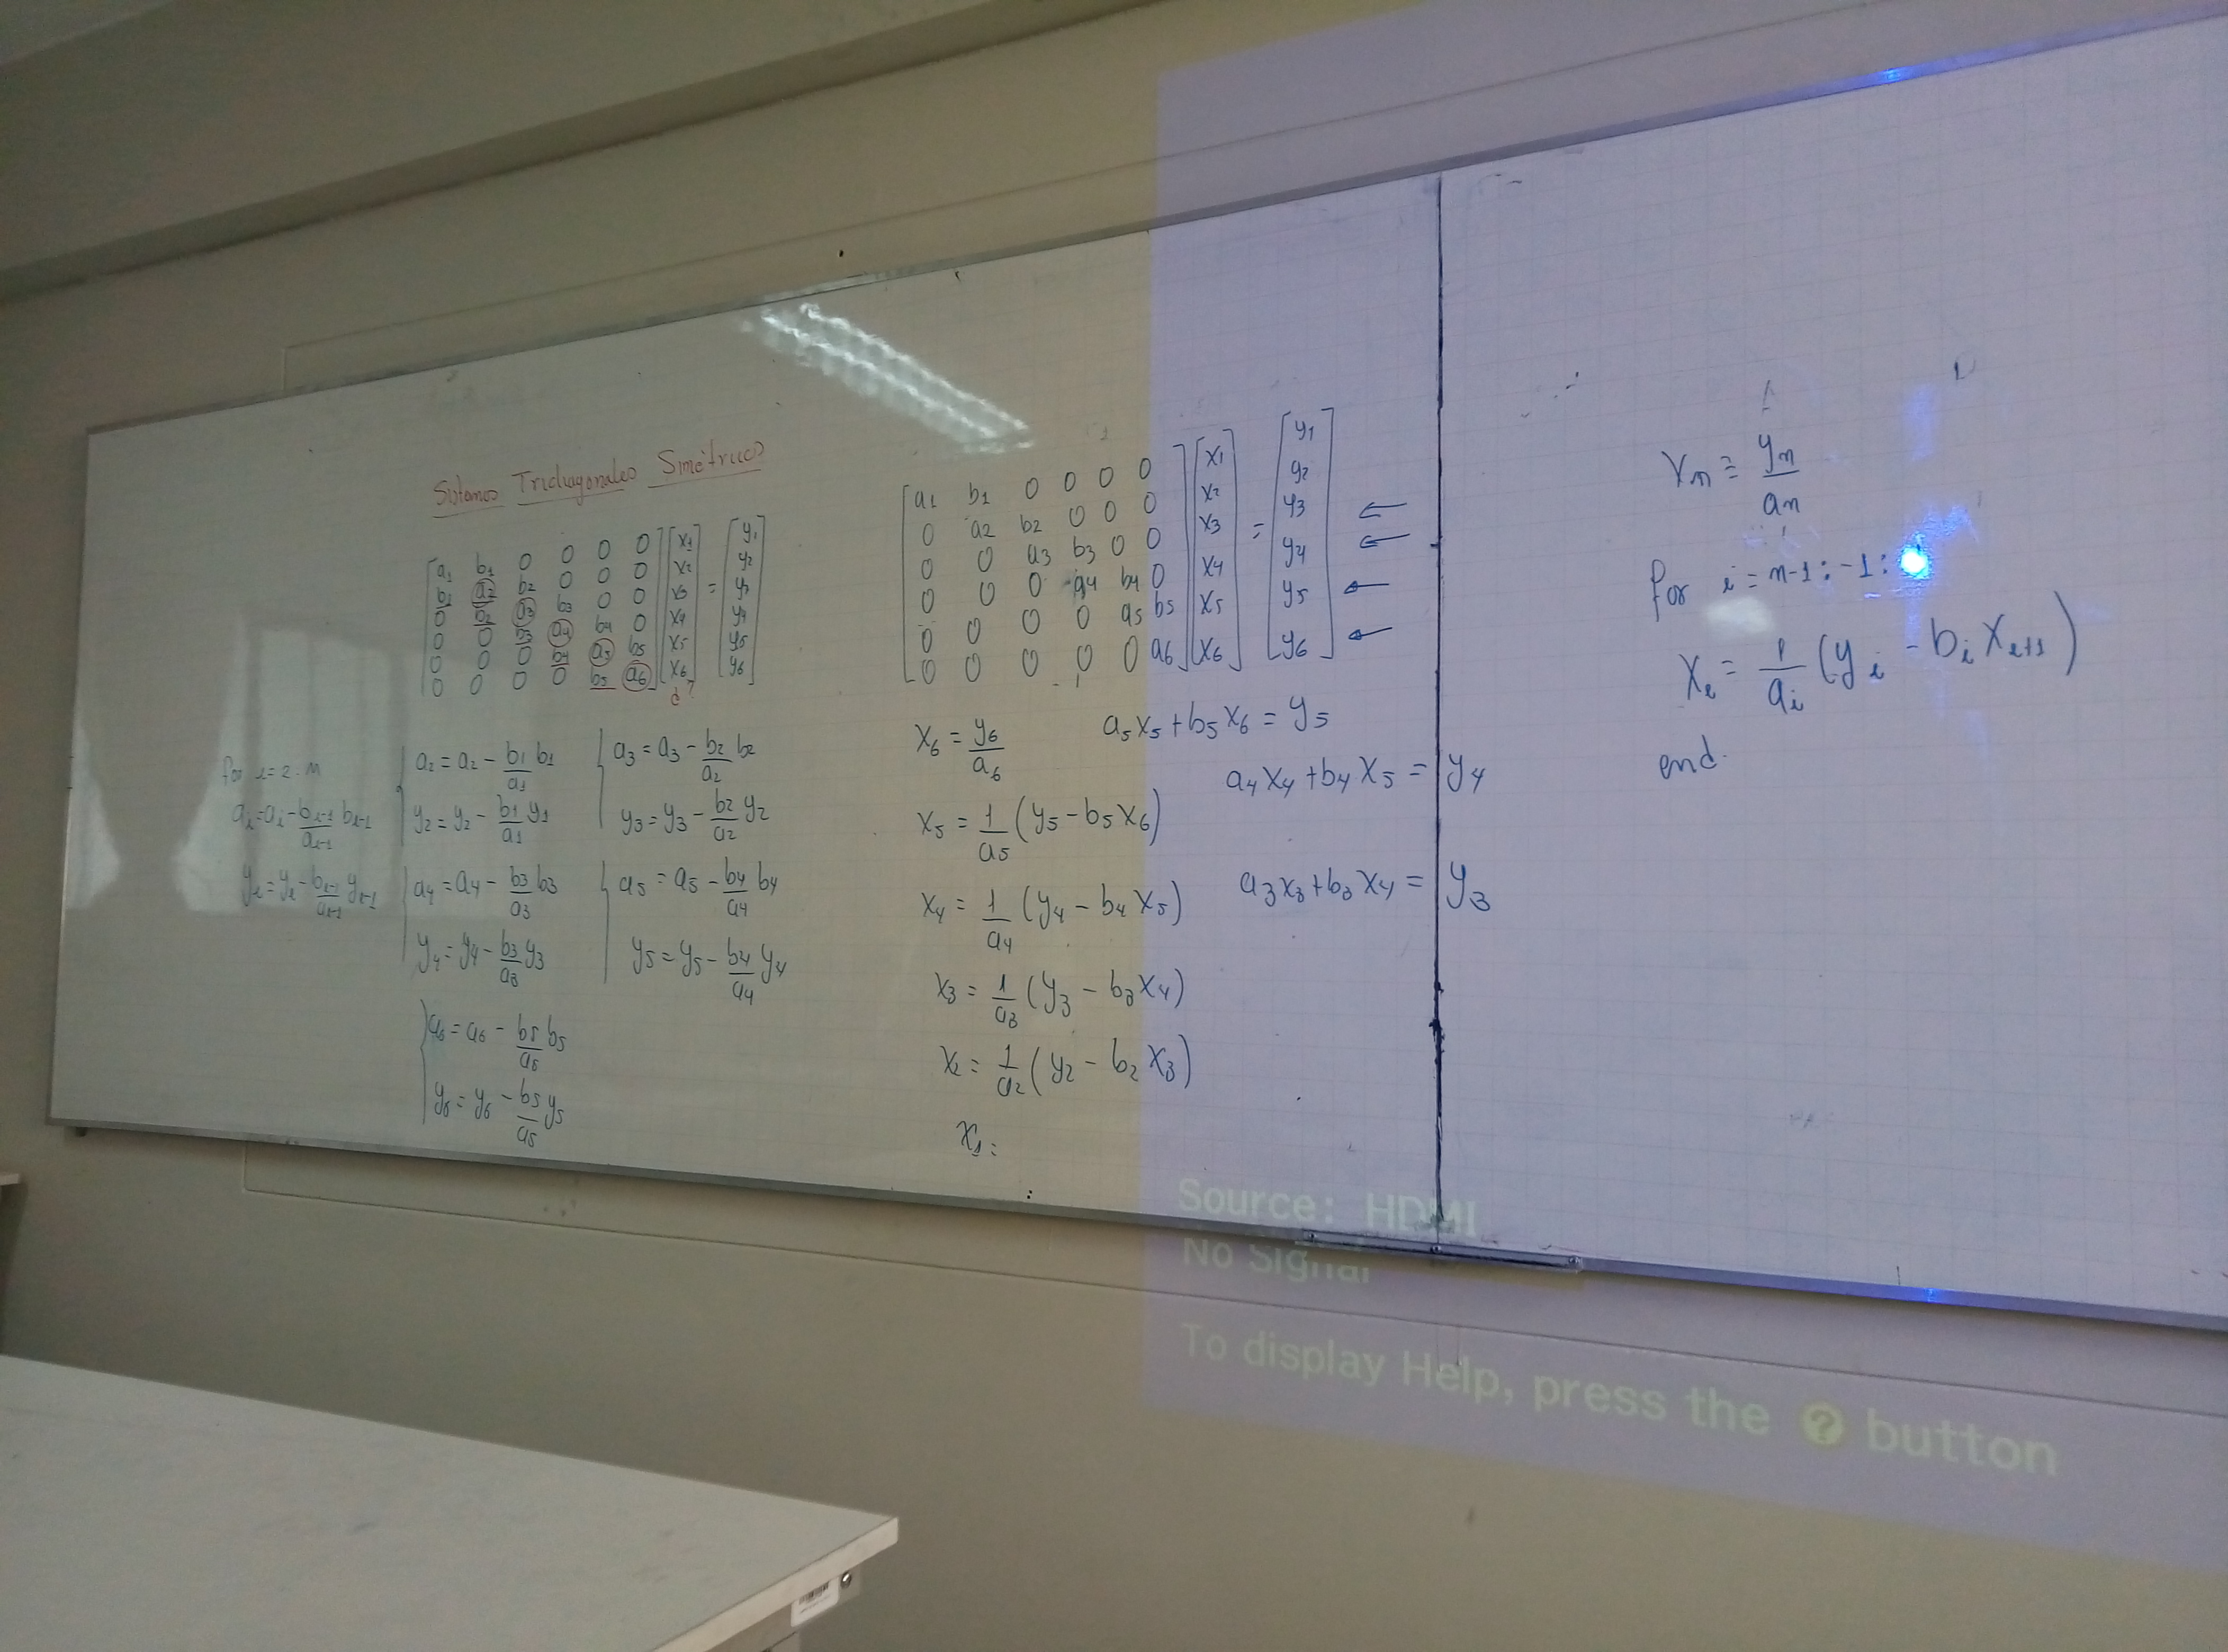 Sistemas Tridiagonales Simétricos
a1 b1 0 0 0 0
b1 a2 b2 0 0 0
0 b2 a3 b3 0 0
0 0 b3 a4 b4 0
0 0 0 b4 a5 b5
0 0 0 0 b5 a6
x1
x2
x3
x4
x5
x6
=
y1
y2
y3
y4
y5
y6
for i=2:n
ai=ai-bi-1/ai-1 bi-1
yi=yi-bi-1/ai-1 yi-1
a2=a2-b1/a1 b1
y2=y2-b1/a1 y1
a3=a3-b2/a2 b2
y3=y3-b2/a2 y2
a4=a4-b3/a3 b3
y4=y4-b3/a3 y3
a5=a5-b4/a4 b4
y5=y5-b4/a4 y4
a6=a6-b5/a5 b5
y6=y6-b5/a5 y5
a1 b1 0 0 0 0
0 a2 b2 0 0 0
0 0 a3 b3 0 0
0 0 0 a4 b4 0
0 0 0 0 a5 b5
0 0 0 0 0 a6
x1
x2
x3
x4
x5
x6
=
y1
y2
y3 ←
y4 ←
y5 ←
y6 ←
x6=y6/a6
a5x5+b5x6=y5
x5=1/a5(y5-b5x6)
a4x4+b4x5=y4
x4=1/a4(y4-b4x5)
a3x3+b3x4=y3
x3=1/a3(y3-b3x4)
x2=1/a2(y2-b2x3)
x1=
xn=yn/an
for i=n-1:-1:
xi=1/ai(yi-bixi+1)
end.
Source: HDMI
No Signal
To display Help, press the ? button